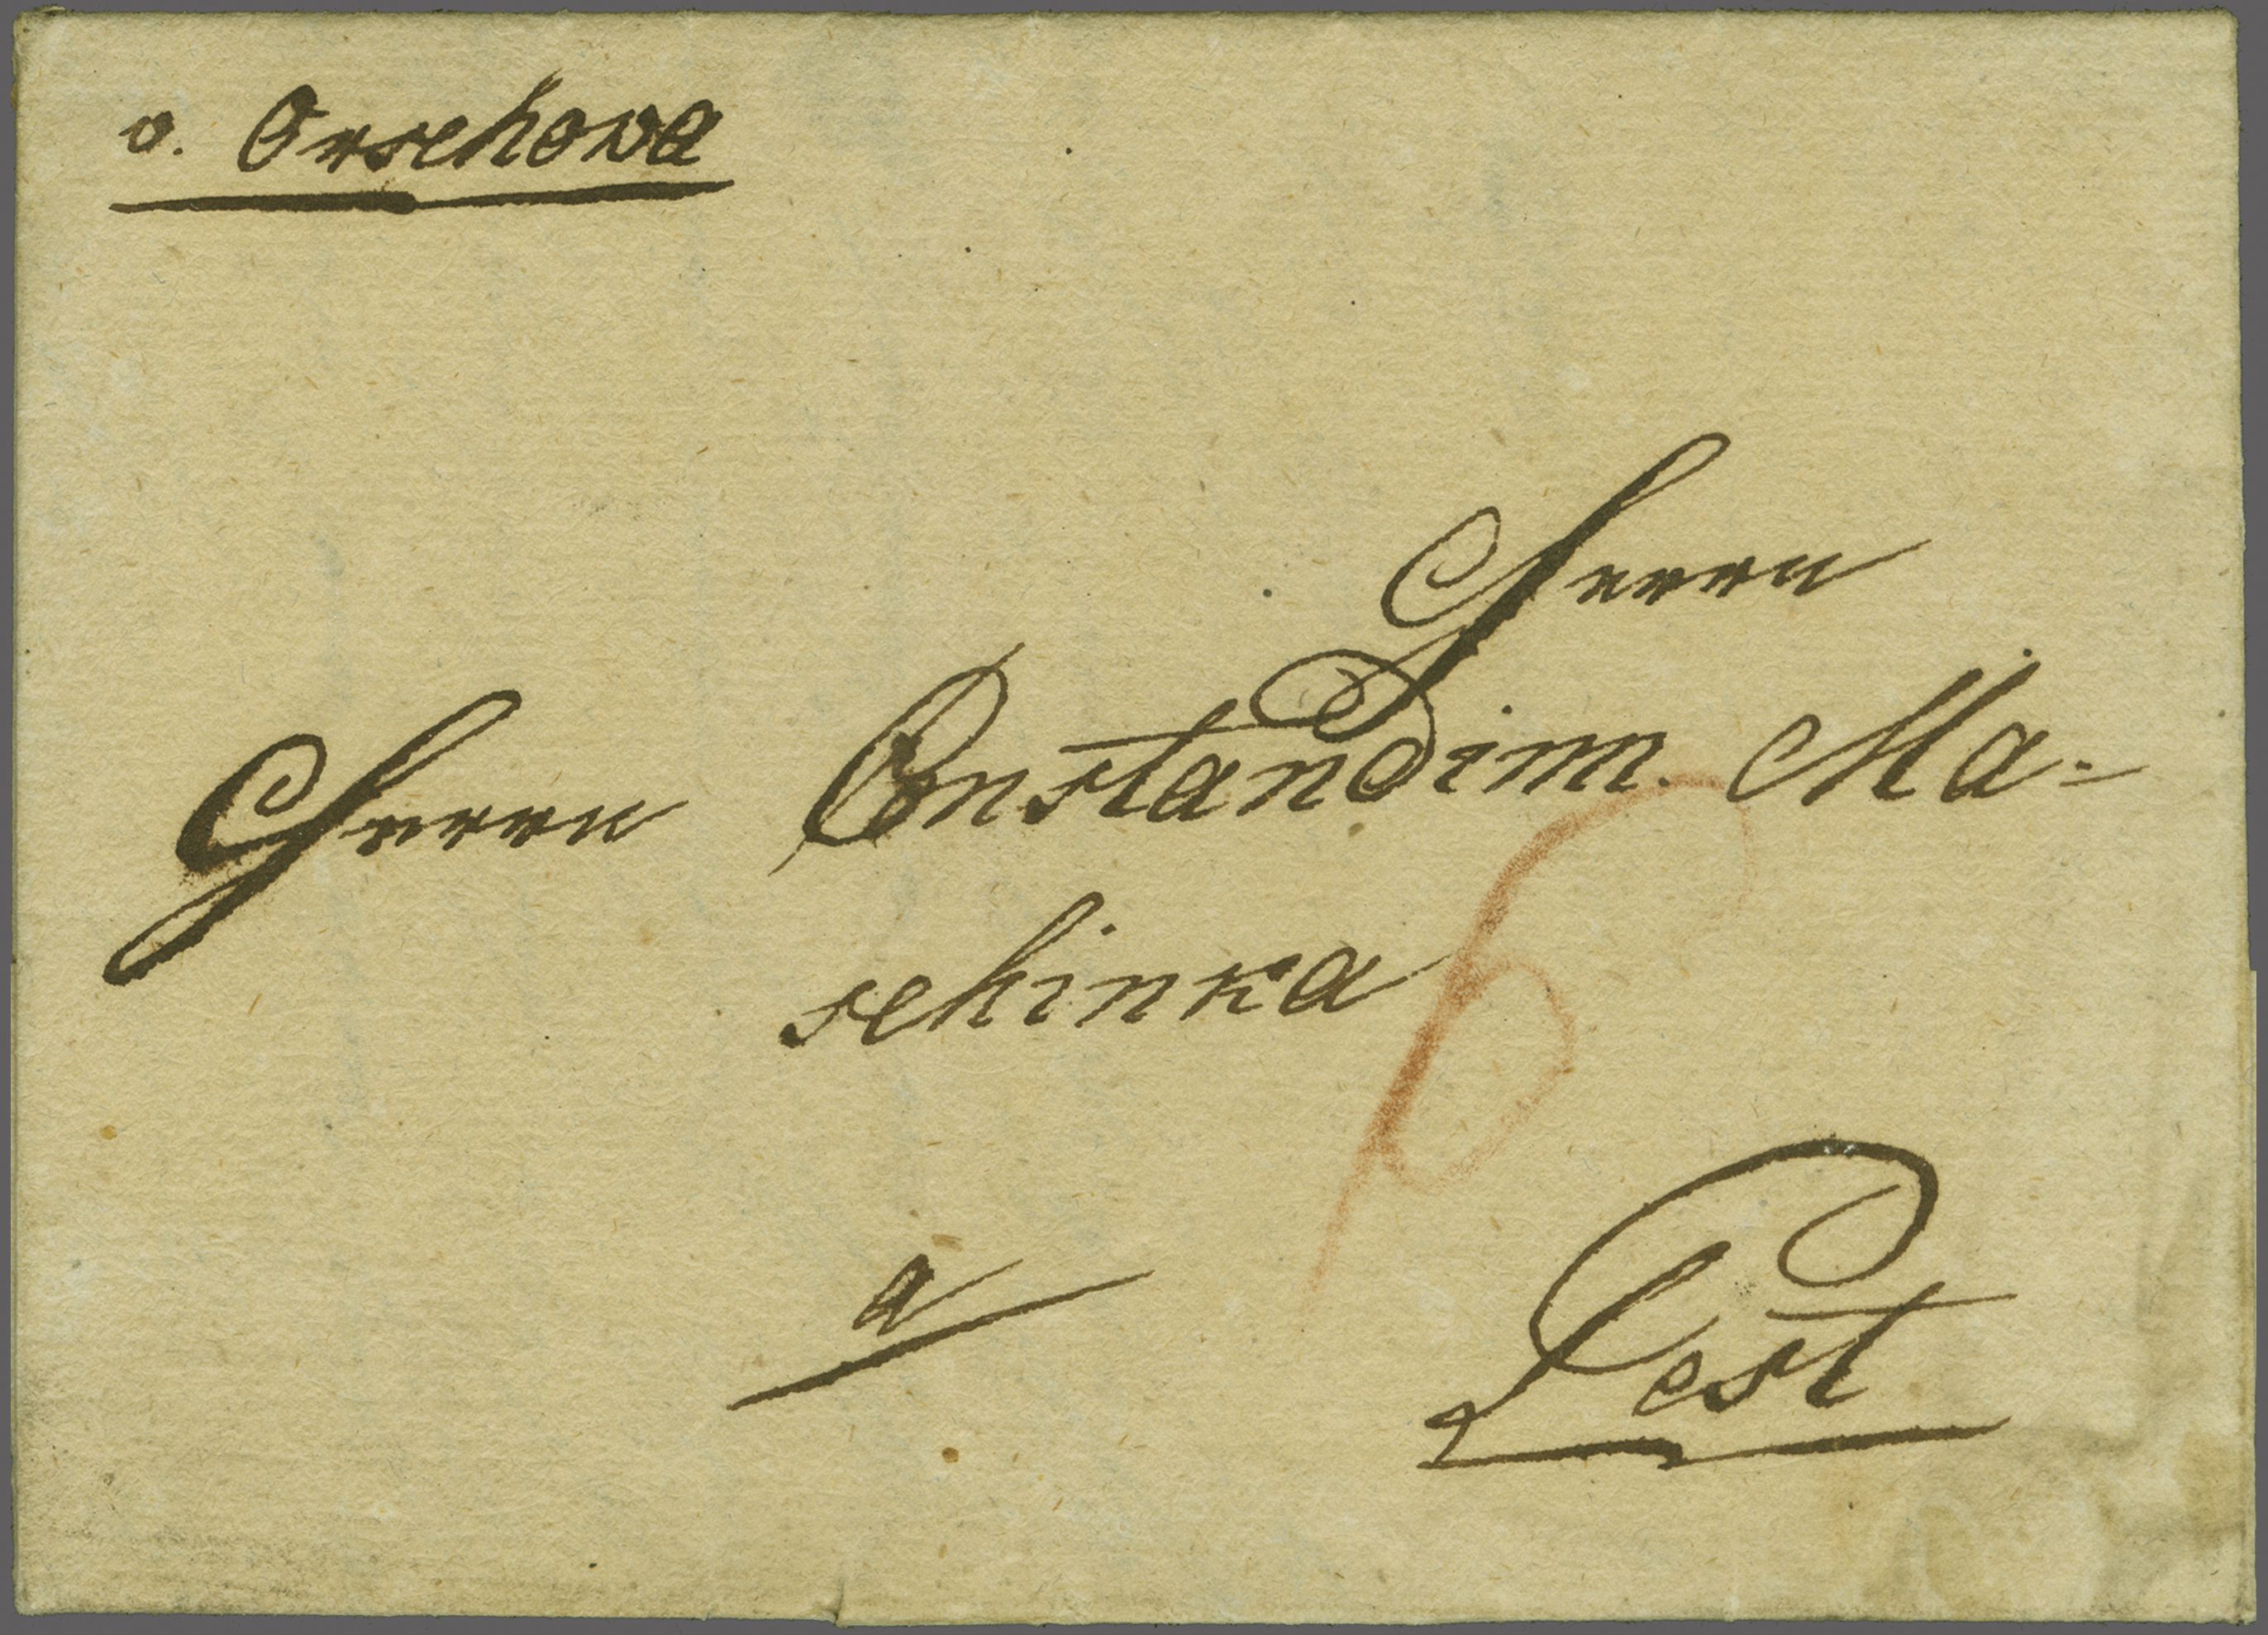 v. Orschowa
Herrn
Herrn Constandim. Ma=
schinka
6
a Pest